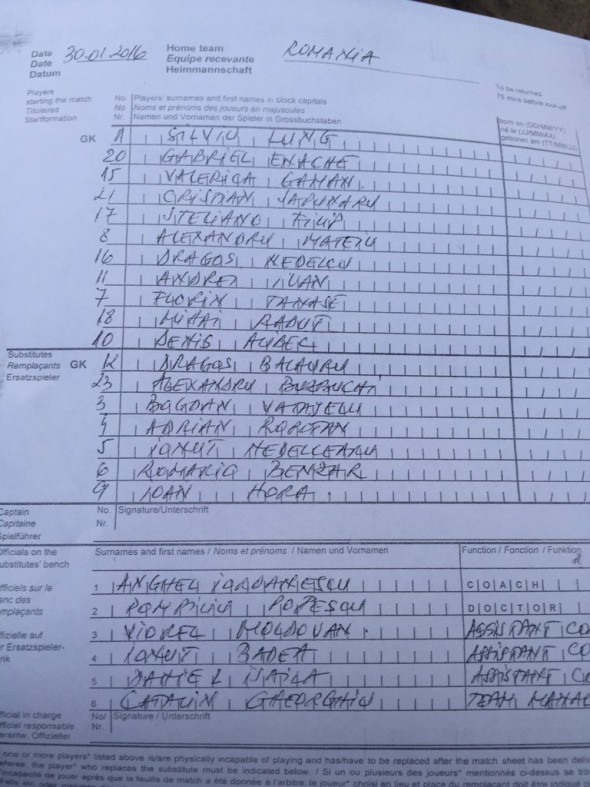 Date 30.01.2016 Home team ROMANIA
Date Equipe recevante
Datum Heimmannschaft
To be returned
75 mins before kick-off
Players No. Players' surnames and first names in block capitals born on (DD/MM/YY)
starting the match No. Noms et prénoms des joueurs en majuscules né le (JJ/MM/AA)
Titulaires Nr. Namen und Vornamen der Spieler in Grossbuchstaben geboren am (TT/MM/JJ)
Startformation
GK 1 SILVIU LUNG
20 GABRIEL ENACHE
15 VALERICA GAMAN
21 CRISTIAN SAPUNARU
17 STELIANO FILIP
8 ALEXANDRU MATEIU
16 DRAGOS NEDELCU
11 ANDREI IVAN
7 FLORIN TANASE
18 MIHAI RADUT
10 DENIS ALIBEC
Substitutes
Remplaçants GK 12 DRAGOS BALAURU
Ersatzspieler 23 ALEXANDRU
3 BOGDAN VATAJELU
4 ADRIAN ROPOTAN
5 IONUT NEDELCEARU
6 ROMARIO BENZAR
9 IOAN HORA
Captain No. Signature/Unterschrift
Capitaine Nr.
Spielführer
Officials on the Surnames and first names / Noms et prénoms / Namen und Vornamen Function / Fonction / Funktion
substitutes' bench
1 ANGHEL IORDANESCU COACH
2 POMPILIU POPESCU DOCTOR
3 VIOREL MOLDOVAN ASSISTANT CO
4 IONUT BADEA ASSISTANT CO
5 DANIEL ISAILA ASSISTANT CO
6 CATALIN GHEORGHIU TEAM MANA
No/ Signature / Unterschrift
Nr.
one or more players* listed above is/are physically incapable of playing and has/have to be replaced after the match sheet has been
the player* who replaces the substitute must be indicated below. / Si un ou plusieurs des joueurs* mentionnés ci-dessus se
de jouer après que la feuille de match a été donnée à l'arbitre, le joueur* choisi en lieu et place du remplaçant doit être indiqué